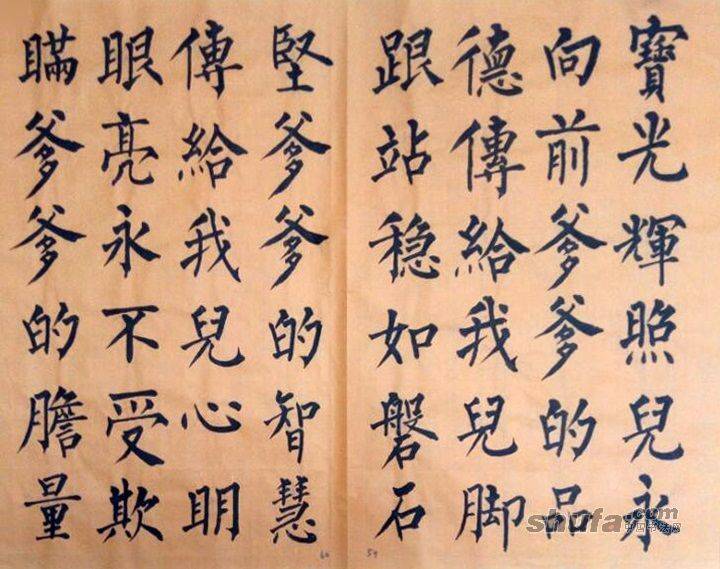 寶光輝照兒永
向前爹爹的品
德傳給我兒脚
跟站稳如磐石
堅爹爹的智慧
傳給我兒心明
眼亮永不受欺
瞞爹爹的膽量
59
60
shufa.com